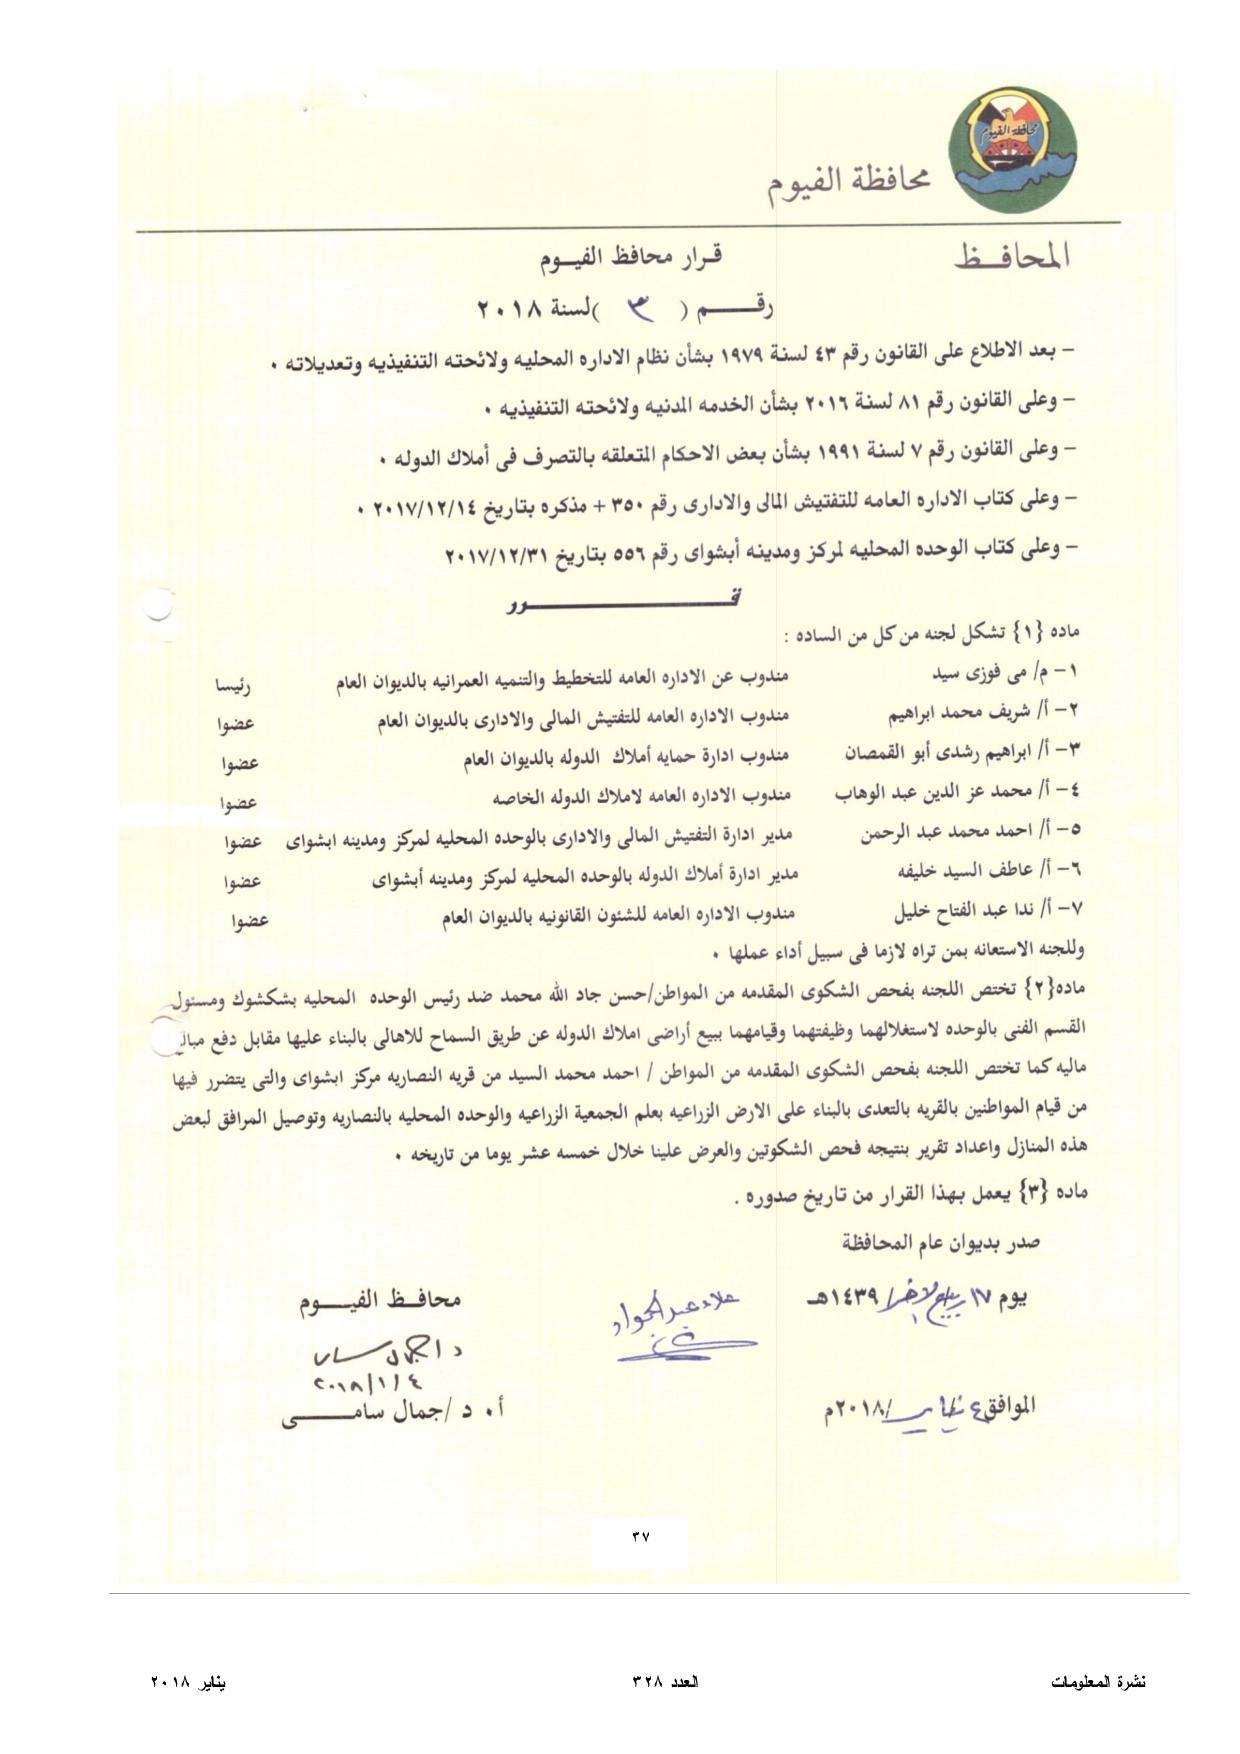 محافظة الفيوم
محافظة الفيوم
المحافـظ
قـرار محافظ الفيـوم
رقـــم ( ٣ )لسنة ٢٠١٨
– بعد الاطلاع على القانون رقم ٤٣ لسنة ١٩٧٩ بشأن نظام الاداره المحليه ولائحته التنفيذيه وتعديلاته ٠
– وعلى القانون رقم ٨١ لسنة ٢٠١٦ بشأن الخدمه المدنيه ولائحته التنفيذيه ٠
– وعلى القانون رقم ٧ لسنة ١٩٩١ بشأن بعض الاحكام المتعلقه بالتصرف فى أملاك الدوله ٠
– وعلى كتاب الاداره العامه للتفتيش المالى والادارى رقم ٣٥٠ + مذكره بتاريخ ٢٠١٧/١٢/١٤ ٠
– وعلى كتاب الوحده المحليه لمركز ومدينه أبشواى رقم ٥٥٦ بتاريخ ٢٠١٧/١٢/٣١
قـــــــــــرر
ماده {١} تشكل لجنه من كل من الساده :
١– م/ مى فوزى سيد مندوب عن الاداره العامه للتخطيط والتنميه العمرانيه بالديوان العام رئيسا
٢– أ/ شريف محمد ابراهيم مندوب الاداره العامه للتفتيش المالى والادارى بالديوان العام عضوا
٣– أ/ ابراهيم رشدى أبو القمصان مندوب ادارة حمايه أملاك الدوله بالديوان العام عضوا
٤– أ/ محمد عز الدين عبد الوهاب مندوب الاداره العامه لاملاك الدوله الخاصه عضوا
٥– أ/ احمد محمد عبد الرحمن مدير ادارة التفتيش المالى والادارى بالوحده المحليه لمركز ومدينه ابشواى عضوا
٦– أ/ عاطف السيد خليفه مدير ادارة أملاك الدوله بالوحده المحليه لمركز ومدينه أبشواى عضوا
٧– أ/ ندا عبد الفتاح خليل مندوب الاداره العامه للشئون القانونيه بالديوان العام عضوا
وللجنه الاستعانه بمن تراه لازما فى سبيل أداء عملها ٠
ماده{٢} تختص اللجنه بفحص الشكوى المقدمه من المواطن/حسن جاد الله محمد ضد رئيس الوحده المحليه بشكشوك ومسئول
القسم الفنى بالوحده لاستغلالهما وظيفتهما وقيامهما ببيع أراضى املاك الدوله عن طريق السماح للاهالى بالبناء عليها مقابل دفع مبالغ
ماليه كما تختص اللجنه بفحص الشكوى المقدمه من المواطن / احمد محمد السيد من قريه النصاريه مركز ابشواى والتى يتضرر فيها
من قيام المواطنين بالقريه بالتعدى بالبناء على الارض الزراعيه بعلم الجمعية الزراعيه والوحده المحليه بالنصاريه وتوصيل المرافق لبعض
هذه المنازل واعداد تقرير بنتيجه فحص الشكوتين والعرض علينا خلال خمسه عشر يوما من تاريخه ٠
ماده {٣} يعمل بهذا القرار من تاريخ صدوره .
صدر بديوان عام المحافظة
يوم ١٧ ربيع الاخر/ ١٤٣٩هـ
محافـظ الفيـــوم
علاء عبد الجواد
د/ جمال سامى
٢٠١٨/١/٤
الموافق ٤ يناير /٢٠١٨م
أ٠ د /جمال سامـــــى
٣٧
نشرة المعلومات العدد ٣٢٨ يناير ٢٠١٨